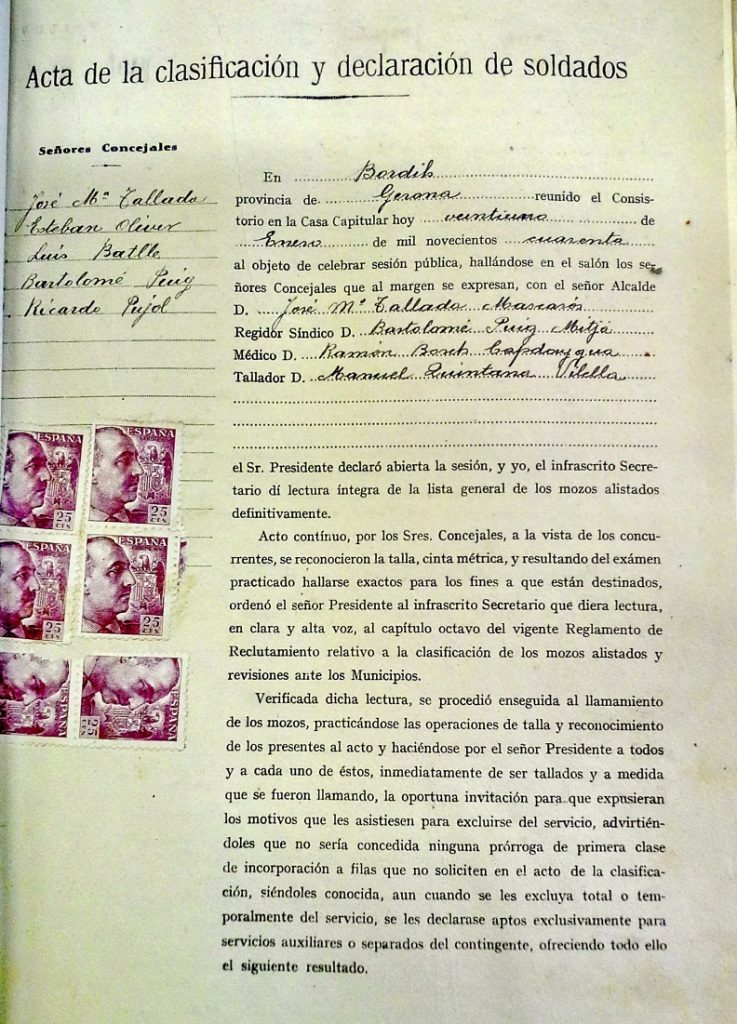 Acta de la clasificación y declaración de soldados
Señores Concejales
José Mª Tallada
Esteban Oliver
Luis Batlle
Bartolomé Puig
Ricardo Pujol
En Bordils
provincia de Gerona reunido el Consis-
torio en la Casa Capitular hoy veintiuno de
Enero de mil novecientos cuarenta
al objeto de celebrar sesión pública, hallándose en el salón los se-
ñores Concejales que al margen se expresan, con el señor Alcalde
D. José Mª Tallada Mascarós
Regidor Síndico D. Bartolomé Puig Mitjá
Médico D. Ramón Bosch
Tallador D. Manuel Quintana Vilella
el Sr. Presidente declaró abierta la sesión, y yo, el infrascrito Secre-
tario dí lectura íntegra de la lista general de los mozos alistados
definitivamente.
Acto contínuo, por los Sres. Concejales, a la vista de los concu-
rrentes, se reconocieron la talla, cinta métrica, y resultando del exámen
practicado hallarse exactos para los fines a que están destinados,
ordenó el señor Presidente al infrascrito Secretario que diera lectura,
en clara y alta voz, al capítulo octavo del vigente Reglamento de
Reclutamiento relativo a la clasificación de los mozos alistados y
revisiones ante los Municipios.
Verificada dicha lectura, se procedió enseguida al llamamiento
de los mozos, practicándose las operaciones de talla y reconocimiento
de los presentes al acto y haciéndose por el señor Presidente a todos
y a cada uno de éstos, inmediatamente de ser tallados y a medida
que se fueron llamando, la oportuna invitación para que expusieran
los motivos que les asistiesen para excluirse del servicio, advirtién-
doles que no sería concedida ninguna prórroga de primera clase
de incorporación a filas que no soliciten en el acto de la clasifica-
ción, siéndoles conocida, aun cuando se les excluya total o tem-
poralmente del servicio, se les declarase aptos exclusivamente para
servicios auxiliares o separados del contingente, ofreciendo todo ello
el siguiente resultado.
ESPAÑA
25
CTS
ESPAÑA
25
CTS
ESPAÑA
25
CTS
ESPAÑA
25
CTS
ESPAÑA
25
CTS
ESPAÑA